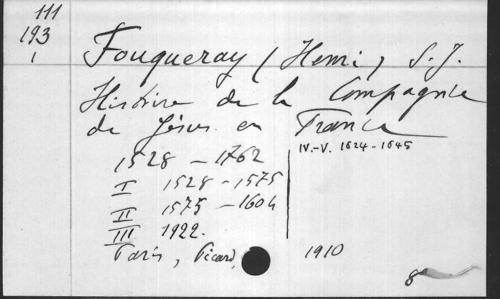 111
193
1
Fouqueray (Henri) S.J.
Histoire de la Compagnie
de Jésus en France
IV.-V. 1624-1645
1528 - 1762
I 1528 - 1575
II 1575 - 1604
III 1922.
Paris, Picard, 1910
8°